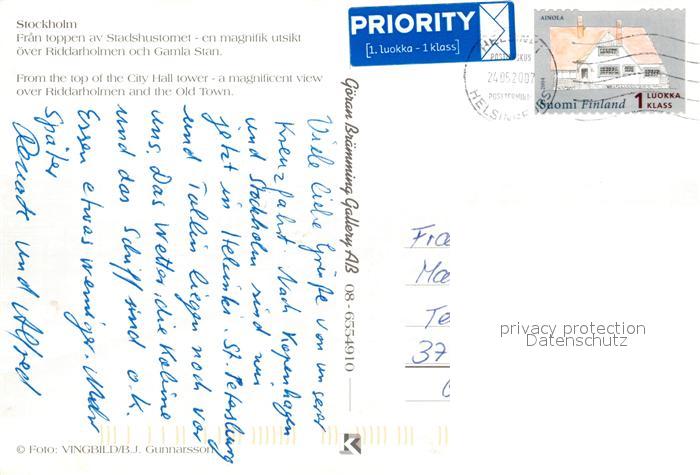 Stockholm
Från toppen av Stadshustornet - en magnifik utsikt
över Riddarholmen och Gamla Stan.
From the top of the City Hall tower - a magnificent view
over Riddarholmen and the Old Town.
Viele liebe Grüße von unserer
Kreuzfahrt. Nach Kopenhagen
und Stockholm sind wir
jetzt in Helsinki. St. Petersburg
und Tallin liegen noch vor
uns. Das Wetter, die Kabine
und das Schiff sind o.k.
Essen etwas weniger. Mehr
später
Renate und Alfred
© Foto: VINGBILD/B.J. Gunnarsson
Göran Brämming Gallery AB 08-6554910
K
PRIORITY
[1. luokka - 1 klass]
HELSINKI
24.05.2007
HELSINGFORS
AINOLA
2004
Suomi Finland 1 LUOKKA
KLASS
Fra
Ma
Te
37
privacy protection
Datenschutz